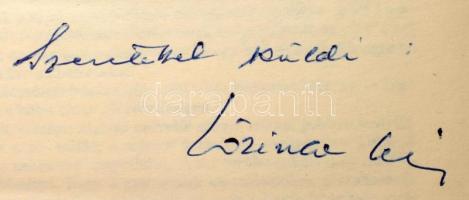 Szeretettel küldi :
darabanth
Lőrincz